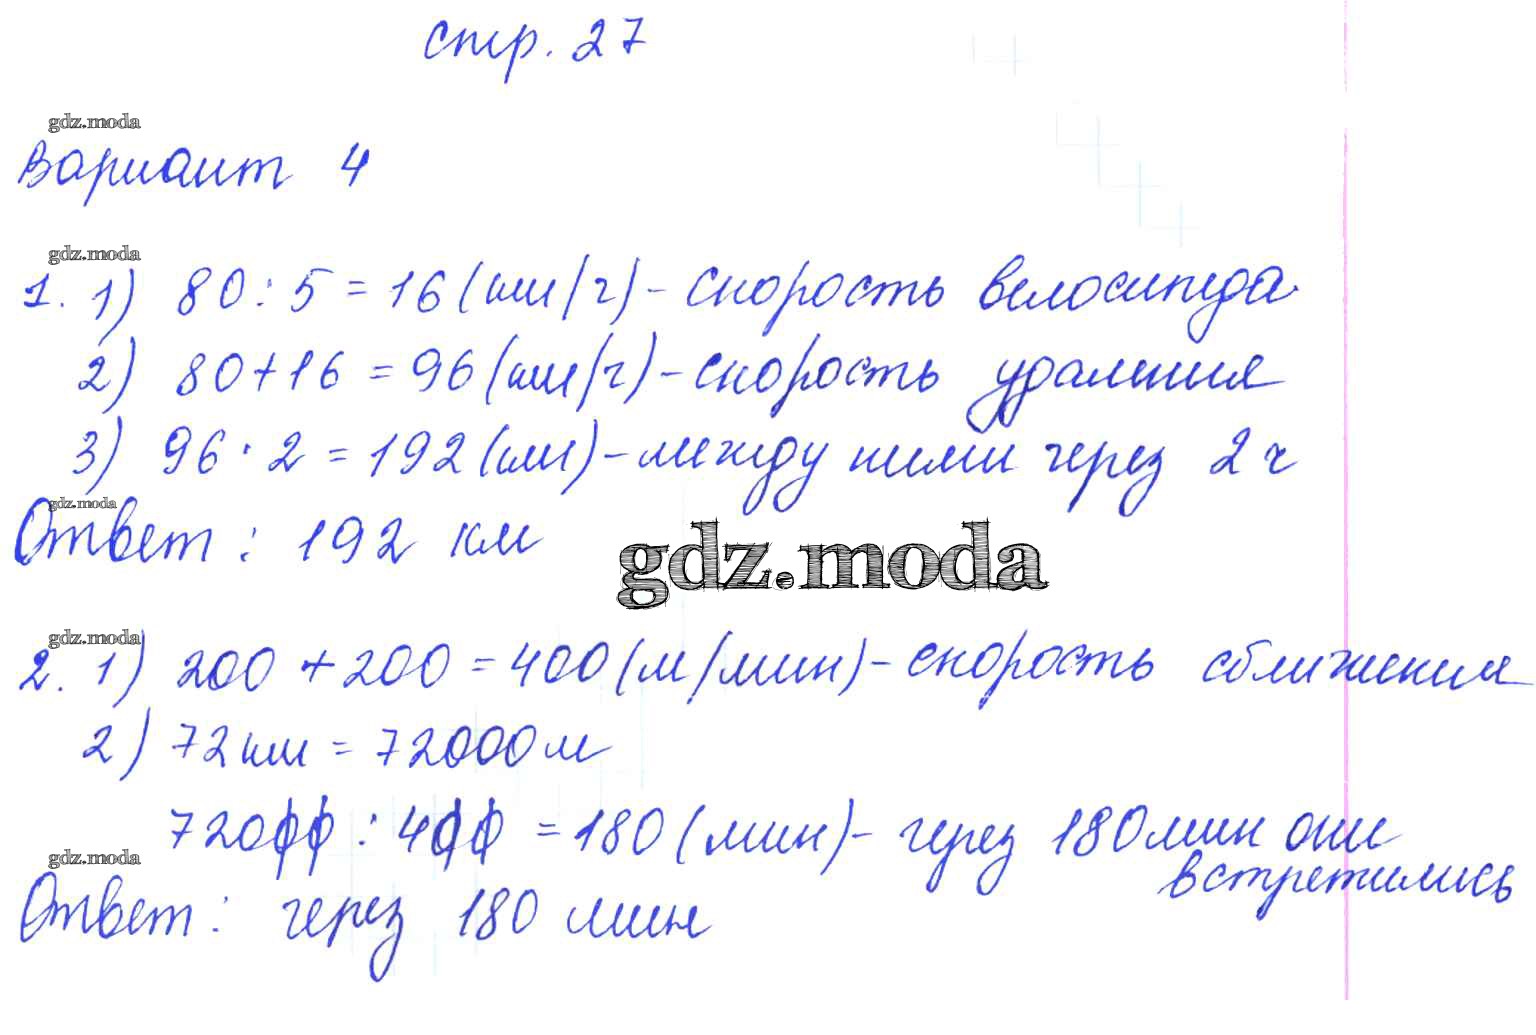 стр. 27
gdz.moda
Вариант 4
gdz.moda
1. 1) 80 : 5 = 16 (км/ч) - скорость велосипеда
2) 80 + 16 = 96 (км/ч) - скорость удаления
3) 96 · 2 = 192 (км) - между ними через 2 ч
gdz.moda
Ответ : 192 км
gdz.moda
gdz.moda
2. 1) 200 + 200 = 400 (м/мин) - скорость сближения
2) 72 км = 72000 м
72000 : 400 = 180 (мин) - через 180 мин они
встретились
gdz.moda
Ответ : через 180 мин